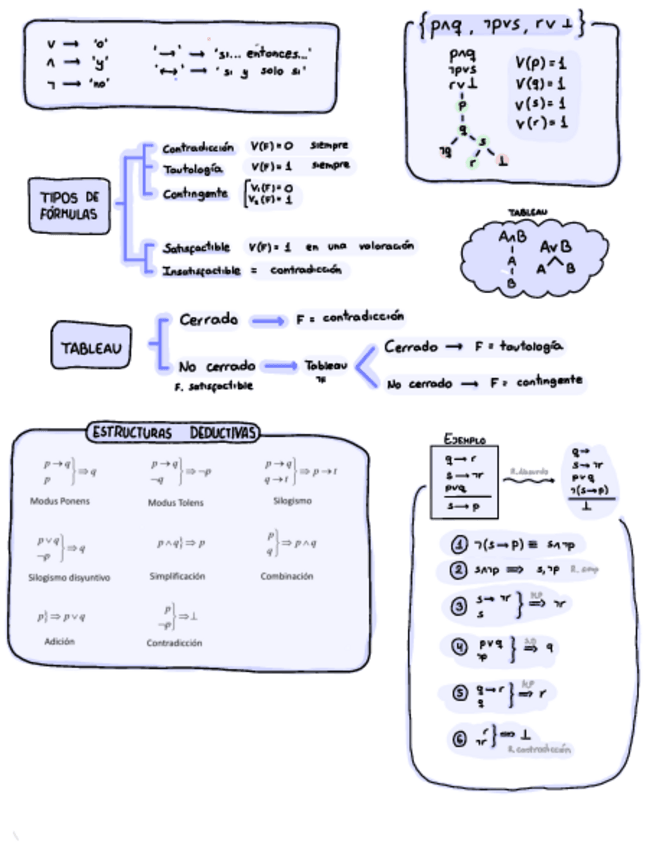 ∨ → 'o'
∧ → 'y'
¬ → 'no'
'→' → 'si... entonces...'
'↔' → 'si y solo si'
{p∧q, ¬p∨s, r∨⊥}
p∧q
¬p∨s
r∨⊥
p
q
¬q s
r ⊥
V(p)=1
V(q)=1
V(s)=1
V(r)=1
TIPOS DE
FÓRMULAS
Contradicción V(F)=0 siempre
Tautología V(F)=1 siempre
Contingente V₁(F)=0
V₂(F)=1
Satisfactible V(F)=1 en una valoración
Insatisfactible = contradicción
TABLEAU
A∧B
A
B
A∨B
A B
TABLEAU
Cerrado → F = contradicción
No cerrado → Tableau
F. satisfactible ¬F
Cerrado → F = tautología
No cerrado → F = contingente
ESTRUCTURAS DEDUCTIVAS
p→q
p } ⇒ q
Modus Ponens
p→q
¬q } ⇒ ¬p
Modus Tolens
p→q
q→t } ⇒ p→t
Silogismo
p∨q
¬p } ⇒ q
Silogismo disyuntivo
p∧q} ⇒ p
Simplificación
p
q } ⇒ p∧q
Combinación
p} ⇒ p∨q
Adición
p
¬p } ⇒ ⊥
Contradicción
EJEMPLO
q→r
s→¬r
p∨q
s→p
R.Absurdo
q→
s→¬r
p∨q
¬(s→p)
⊥
① ¬(s→p) ≡ s∧¬p
② s∧¬p ⇒ s,¬p R. simp
③ s→¬r
s } ⇒ ¬r
M.P
④ p∨q
¬p } ⇒ q
S.D
⑤ q→r
q } ⇒ r
M.P
⑥ r
¬r } ⇒ ⊥
R.contradicción